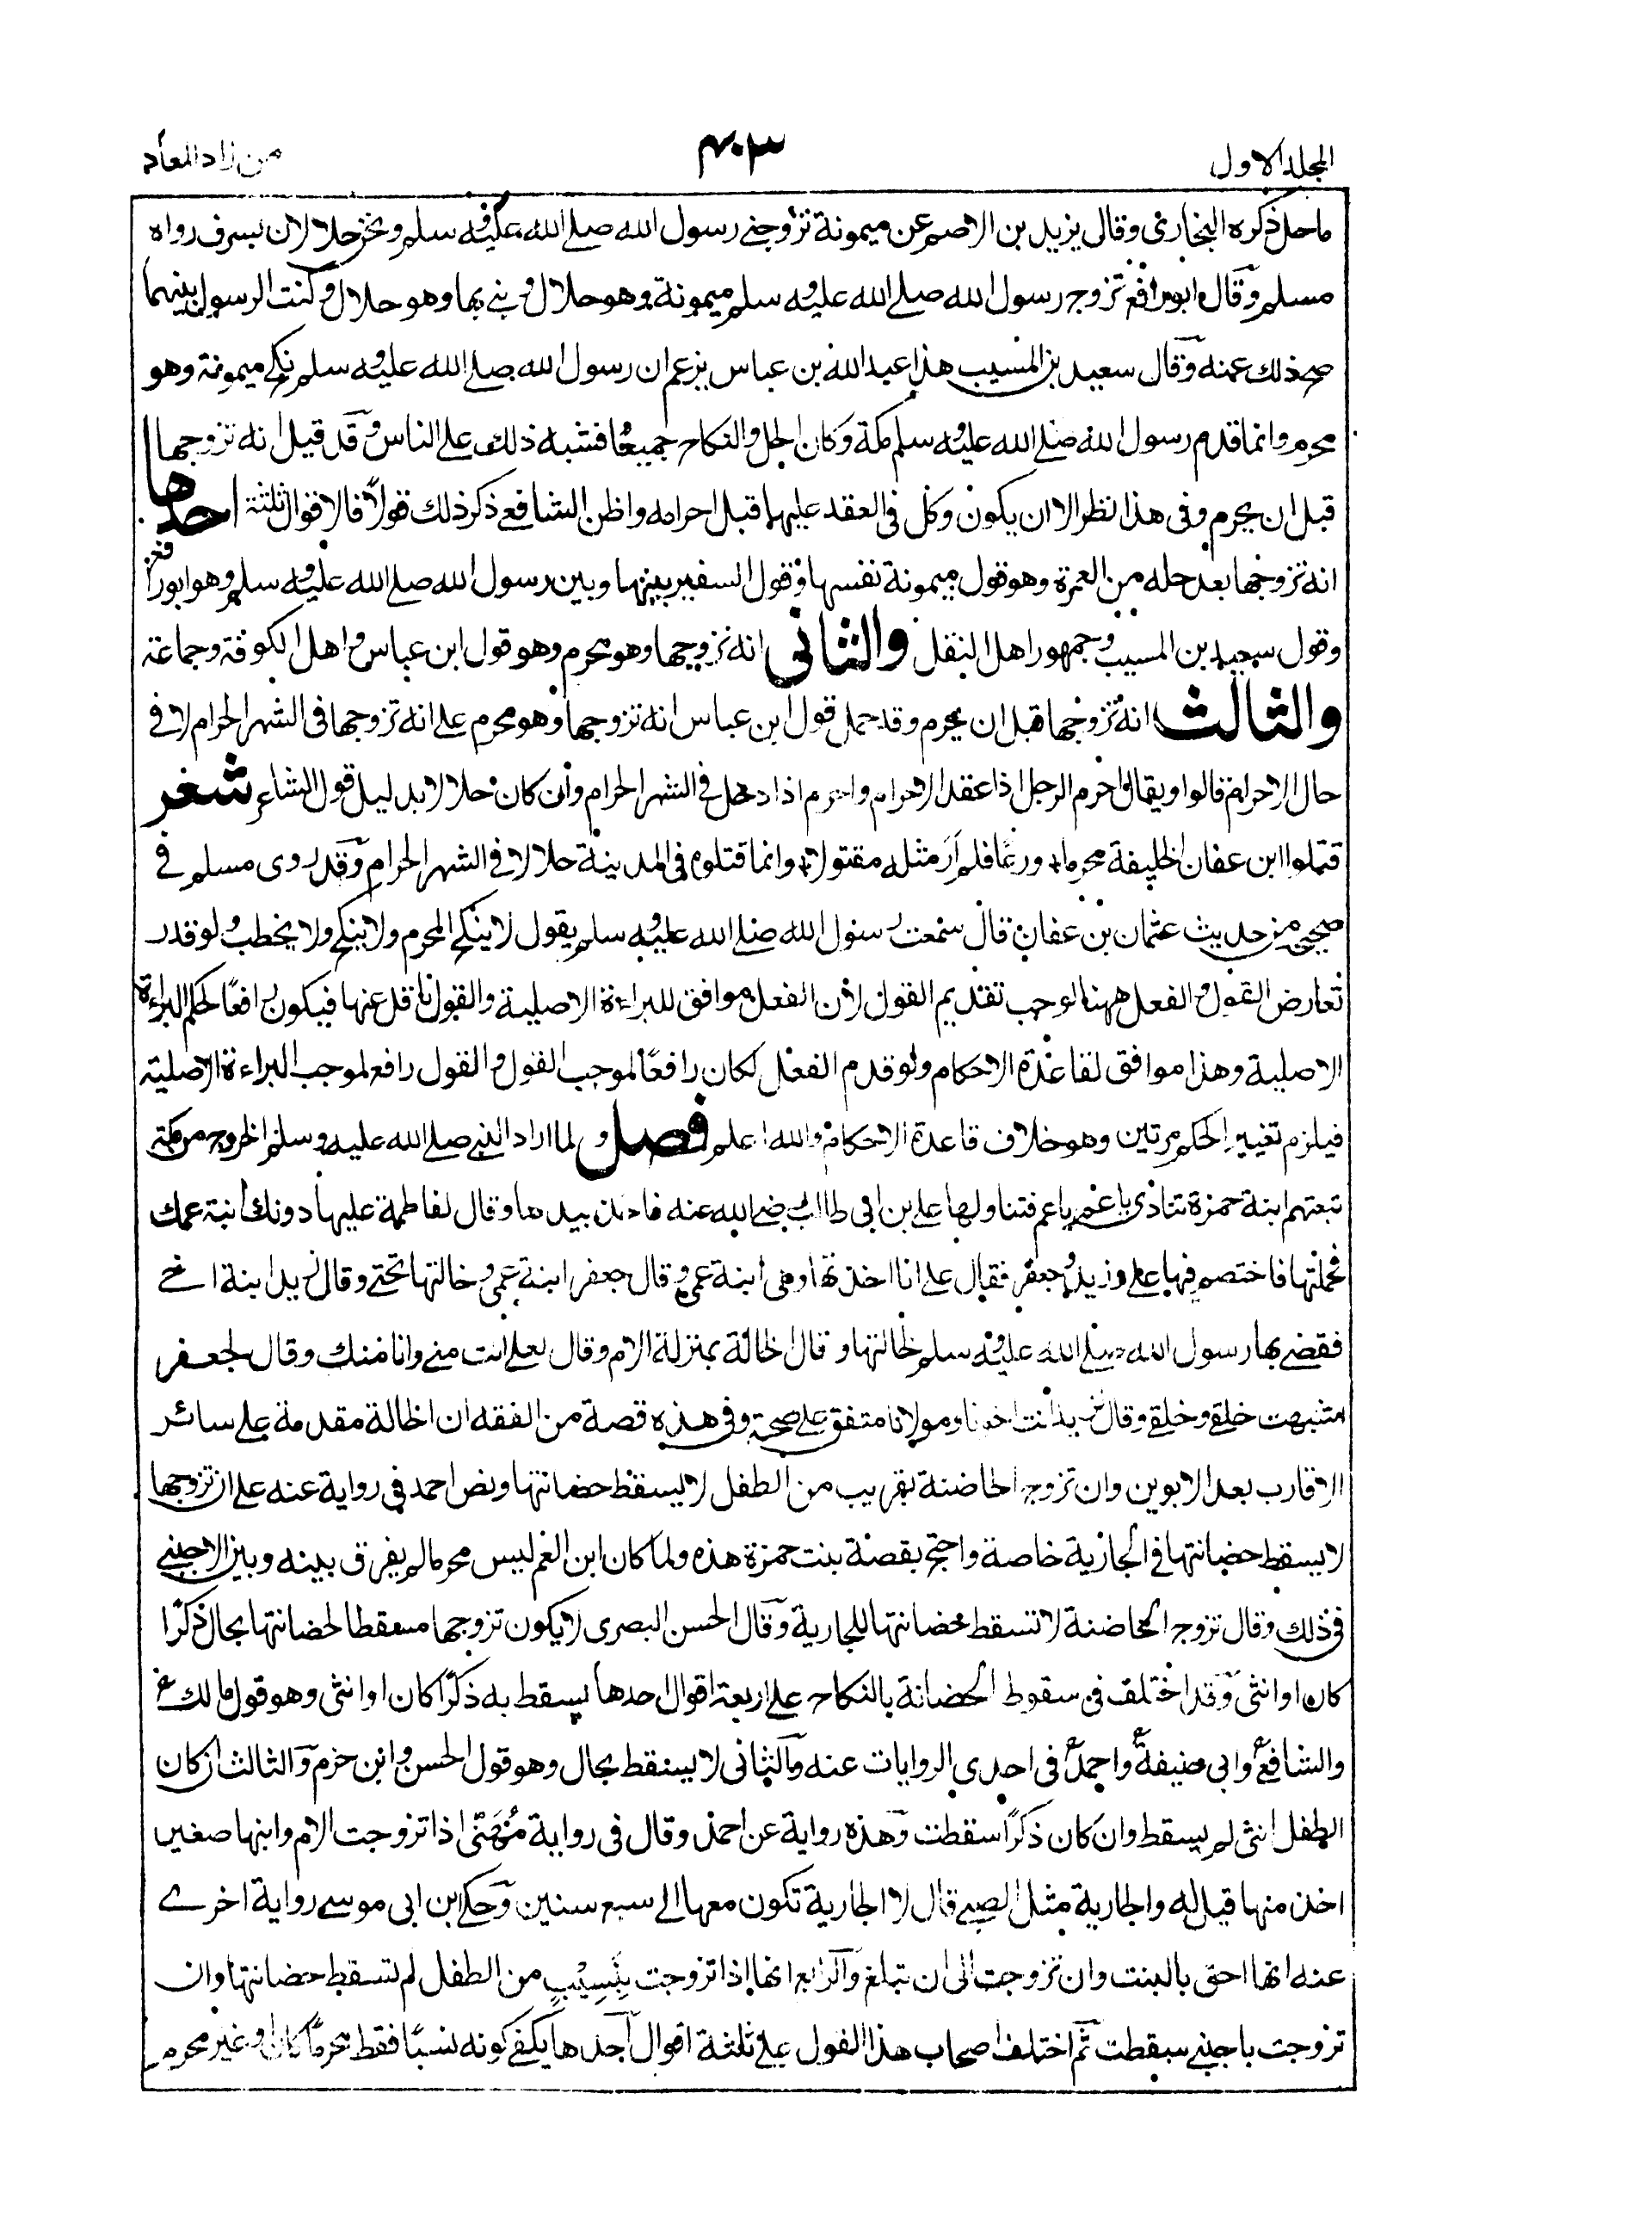 المجلد الاول
٤٠٣
من زاد المعاد
ما حل ذكره البخارى وقال يزيد بن الاصم عن ميمونة تزوجنے رسول الله صلے الله علیه وسلم ونحن حلالان بسرف رواه
مسلم وقال ابورافع تزوج رسول الله صلے الله علیه وسلم ميمونة وهو حلال وبنے بها وهو حلال وكنت الرسول بينهما
صح ذلك عنه وقال سعيد بن المسيب هذا عبد الله بن عباس يزعم ان رسول الله صلے الله علیه وسلم نكح ميمونة وهو
محرم وانما قدم رسول الله صلے الله علیه وسلم مكة وكان الحل والنكاح جميعًا فشبه ذلك علے الناس وقد قيل انه تزوجها
قبل ان يحرم وفى هذا نظر الا ان يكون وكل فى العقد عليها قبل احرامه واظن الشافعے ذكر ذلك قولًا فالاقوال ثلثة احدها
انه تزوجها بعد حله من العمرة وهو قول ميمونة نفسها وقول السفير بينها وبين رسول الله صلے الله علیه وسلم وهو ابورافع
وقول سعيد بن المسيب وجمهور اهل النقل والثانى انه تزوجها وهو محرم وهو قول ابن عباس واهل الكوفة وجماعة
والثالث انه تزوجها قبل ان يحرم وقد حمل قول ابن عباس انه تزوجها وهو محرم علے انه تزوجها فى الشهر الحرام لا فے
حال الاحرام قالوا ويقال احرم الرجل اذا عقد الاحرام واحرم اذا دخل فے الشهر الحرام وان كان حلالا بدليل قول الشاعر شعر
قتلوا ابن عفان الخليفة محرما ورعًا فلم اَرَ مثله مقتولا وانما قتلوه فى المدينة حلالا فے الشهر الحرام وقد روى مسلم فے
صحيحه من حديث عثمان بن عفان قال سمعت رسول الله صلے الله علیه وسلم يقول لا ينكح المحرم ولا ينكح ولا يخطب ولو قدر
تعارض القول والفعل ههنا لوجب تقديم القول لان الفعل موافق للبراءة الاصلية والقول ناقل عنها فيكون رافعًا لحكم البراءة
الاصلية وهذا موافق لقاعدة الاحكام ولو قدم الفعل لكان رافعًا لموجب القول والقول رافع لموجب البراءة الاصلية
فيلزم تغيير الحكم مرتين وهو خلاف قاعدة الاحكام والله اعلم فصل ولما اراد النبے صلے الله عليه وسلم الخروج من مكة
تبعتهم ابنة حمزة تنادى يا عم يا عم فتناولها علے بن ابى طالب رضے الله عنه فاخذ بيدها وقال لفاطمة عليها دونك ابنة عمك
فحملتها فاختصم فيها علے وزيد وجعفر فقال علے انا اخذتها وهى ابنة عمى وقال جعفر ابنة عمى وخالتها تحتے وقال زيد ابنة اخے
فقضے بها رسول الله صلے الله علیه وسلم لخالتها وقال الخالة بمنزلة الام وقال لعلے انت منے وانا منك وقال لجعفر
اشبهت خلقے وخلقے وقال لزيد انت اخونا ومولانا متفق علے صحته وفى هذه قصة من الفقه ان الخالة مقدمة علے سائر
الاقارب بعد الابوين وان تزوج الحاضنة بقريب من الطفل لا يسقط حضانتها ونص احمد فى رواية عنه علے ان تزوجها
لا يسقط حضانتها فے الجارية خاصة واحتج بقصة بنت حمزة هذه ولما كان ابن العم ليس محرما لم يفرق بينه وبين الاجنبے
فى ذلك وقال تزوج الحاضنة لا تسقط حضانتها للجارية وقال الحسن البصرى لا يكون تزوجها مسقطا لحضانتها بحال ذكرًا
كان او انثى وقد اختلف فى سقوط الحضانة بالنكاح علے اربعة اقوال احدها يسقط به ذكرًا كان او انثى وهو قول مالك
والشافعے وابى حنيفة واحمد فى احدى الروايات عنه والثانى لا يسقط بحال وهو قول الحسن وابن حزم والثالث ان كان
الطفل انثى لم يسقط وان كان ذكرًا سقطت وهذه رواية عن احمد وقال فى رواية مُهَنّٰى اذا تزوجت الام وابنها صغير
اخذ منها قيل له والجارية مثل الصبے قال لا الجارية تكون معها الے سبع سنين وحكے ابن ابى موسے رواية اخرے
عنه انها احق بالبنت وان تزوجت الى ان تبلغ والرابع انها اذا تزوجت بِنَسِيْبٍ من الطفل لم تسقط حضانتها وان
تزوجت باجنبے سقطت ثم اختلف اصحاب هذا القول علے ثلثة اقوال احدها يكفے كونه نسبًا فقط محرمًا كان او غير محرم